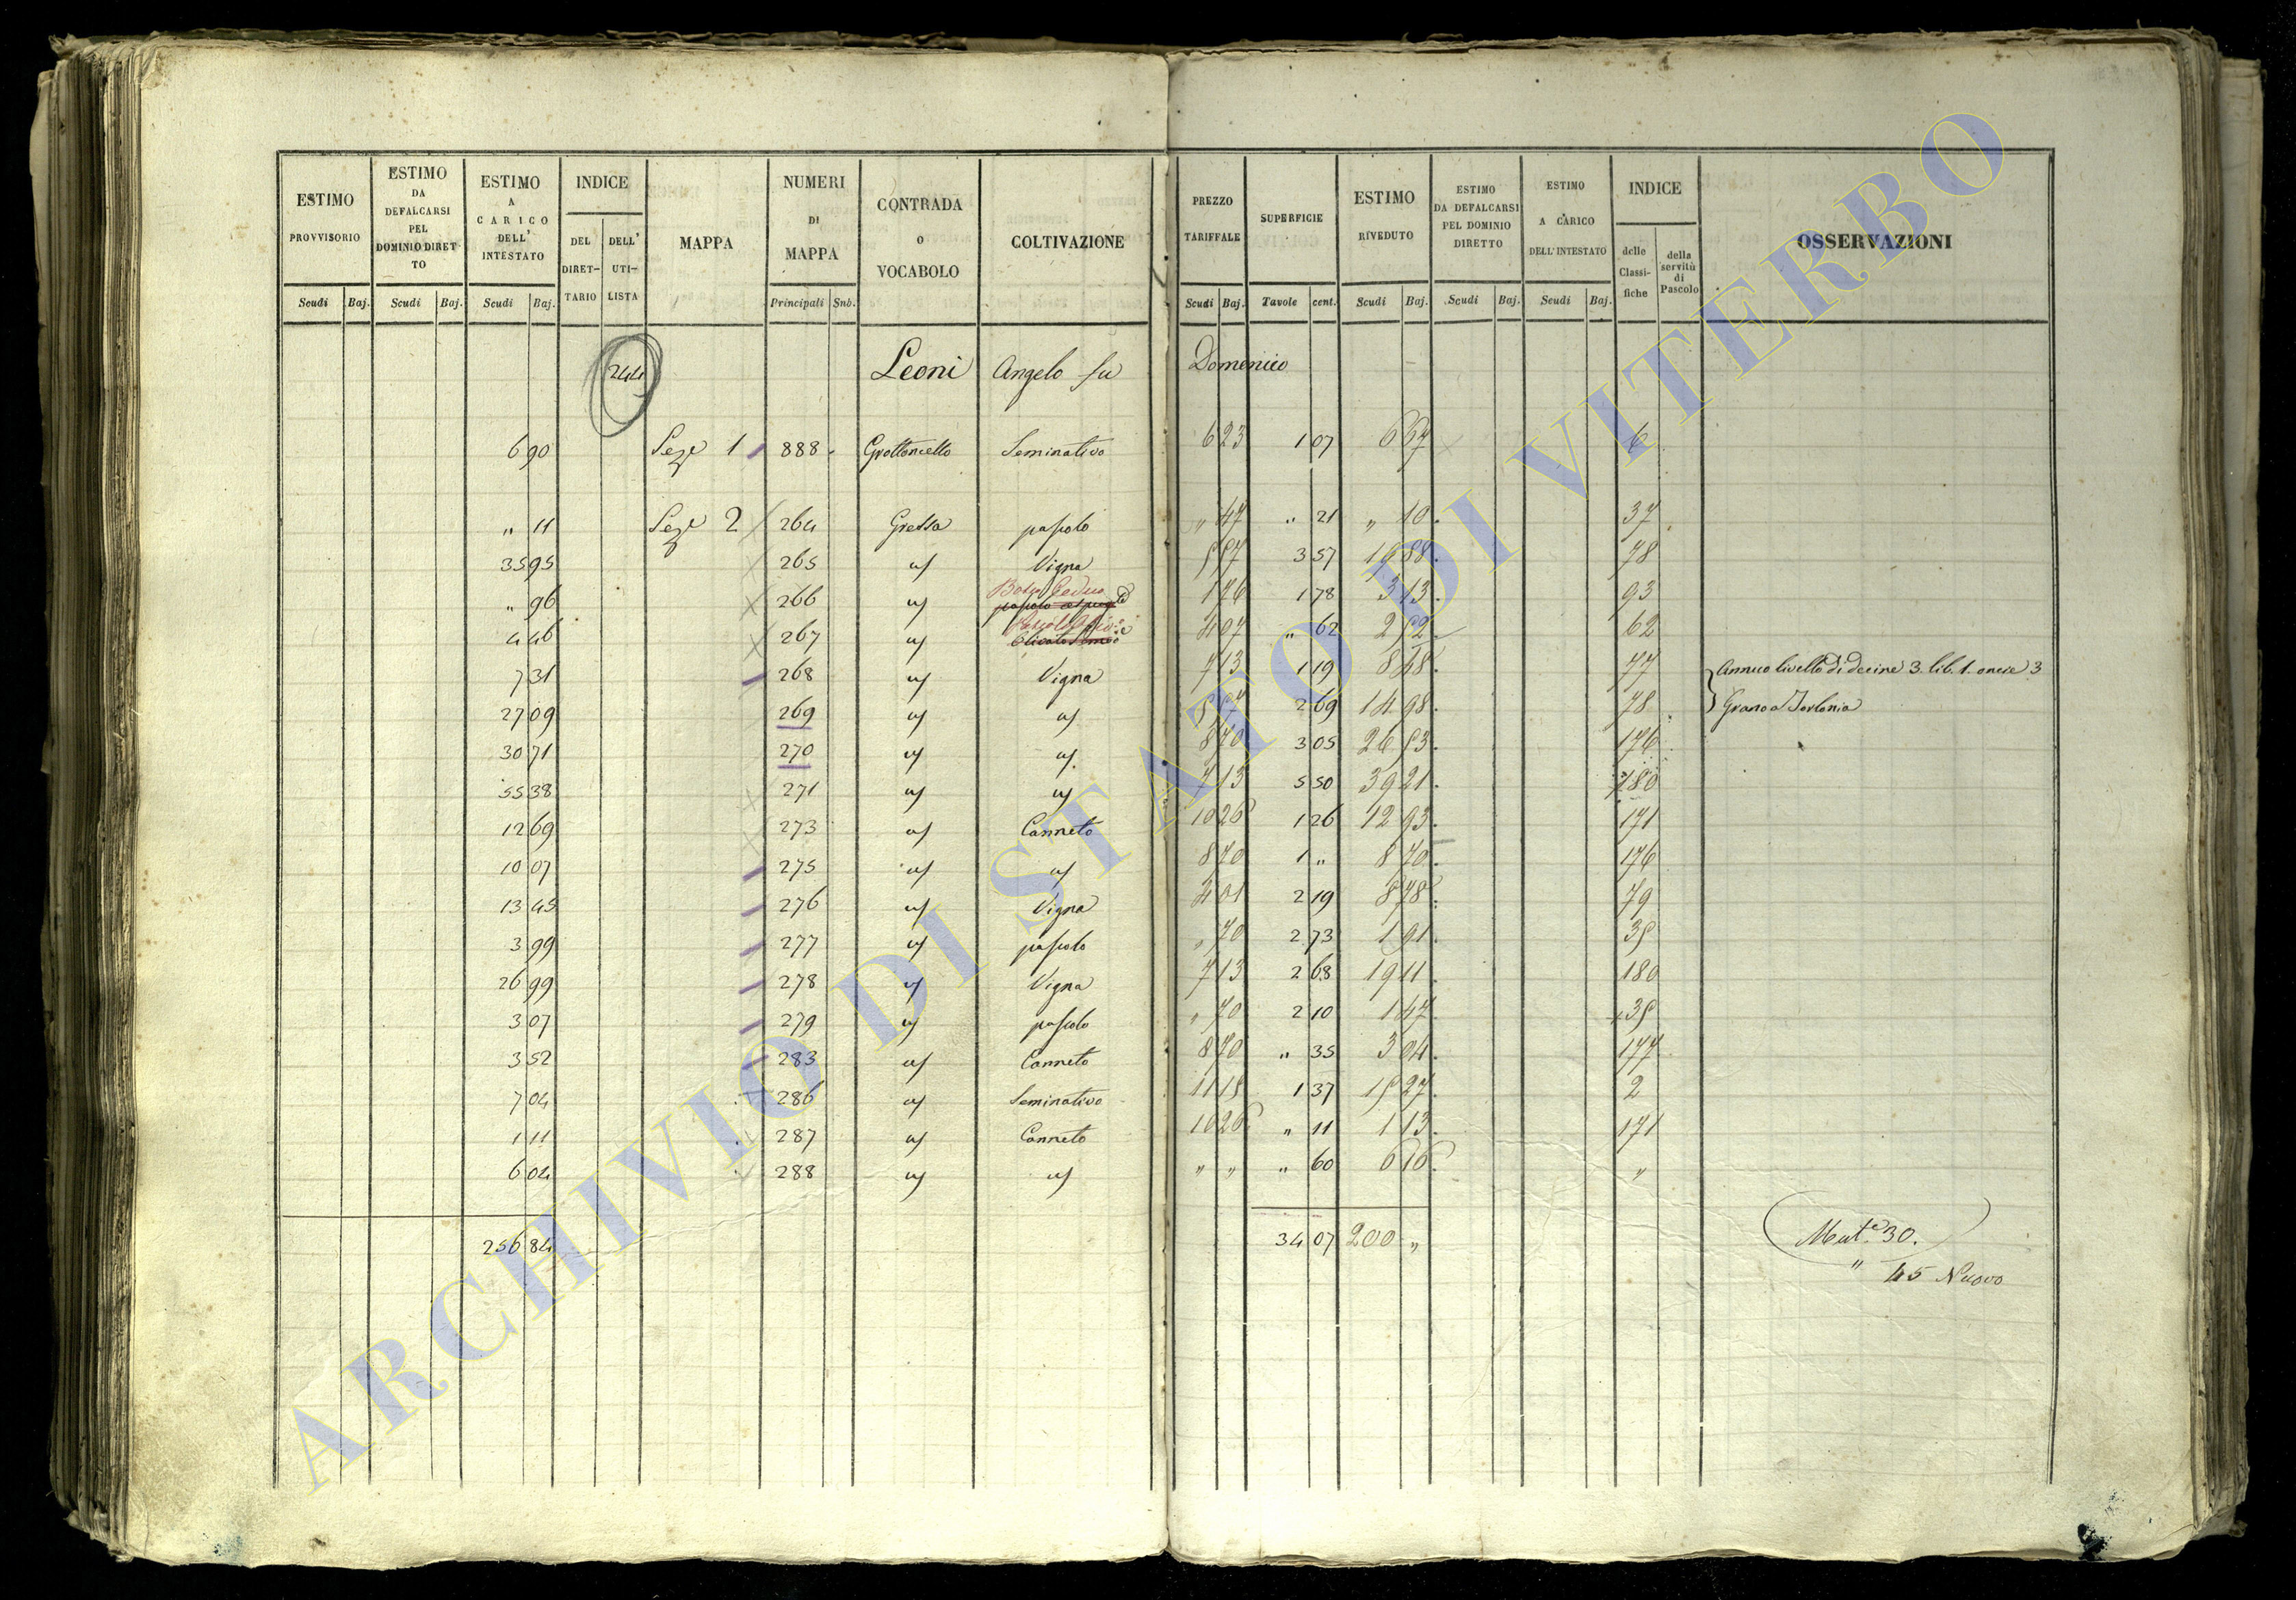 ESTIMO PROVVISORIO
ESTIMO DA DEFALCARSI PEL DOMINIO DIRETTO
ESTIMO A CARICO DELL' INTESTATO
INDICE
DEL DIRET-TARIO
DELL' UTI-LISTA
MAPPA
NUMERI DI MAPPA
CONTRADA O VOCABOLO
COLTIVAZIONE
PREZZO TARIFFALE
SUPERFICIE
ESTIMO RIVEDUTO
ESTIMO DA DEFALCARSI PEL DOMINIO DIRETTO
ESTIMO A CARICO DELL'INTESTATO
INDICE
delle Classi-fiche
della servitù di Pascolo
OSSERVAZIONI
Scudi Baj. Scudi Baj. Scudi Baj. Principali Snb. Scudi Baj. Tavole cent. Scudi Baj. Scudi Baj. Scudi Baj.
244 Leoni Angelo fu Domenico
6 90 Seze 1 888 Grottoncello Seminativo 6 23 1 07 6 67 6
" 11 Seze 2 264 Gressa pascolo " 47 " 21 " 10 37
35 95 265 " Vigna 5 57 3 57 19 88 78
" 96 266 " Bosco Ceduo 1 76 1 78 3 13 93
4 46 267 " 4 07 " 62 2 52 62
7 31 268 " Vigna 7 13 1 19 8 48 77 Annuo livello di decine 3. lib. 1. oncie 3
27 09 269 " " 5 57 2 69 14 98 78 Grano a Torlonia
30 71 270 " " 8 70 3 05 26 53 176
55 38 271 " " 7 13 5 50 39 21 180
12 69 273 " Canneto 10 26 1 26 12 93 171
10 07 275 " " 8 70 1 " 8 70 176
13 45 276 " Vigna 4 01 2 19 8 78 79
3 99 277 " pascolo " 70 2 73 1 91 35
26 99 278 " Vigna 7 13 2 68 19 11 180
3 07 279 " pascolo " 70 2 10 1 47 35
3 52 283 " Canneto 8 70 " 35 3 04 177
7 04 286 " Seminativo 11 15 1 37 15 27 2
1 11 287 " Canneto 10 26 " 11 1 13 171
6 04 288 " " " " " 60 6 16 "
256 84 34 07 200 "
Mut.e 30.
" 45 Nuovo
ARCHIVIO DI STATO DI VITERBO